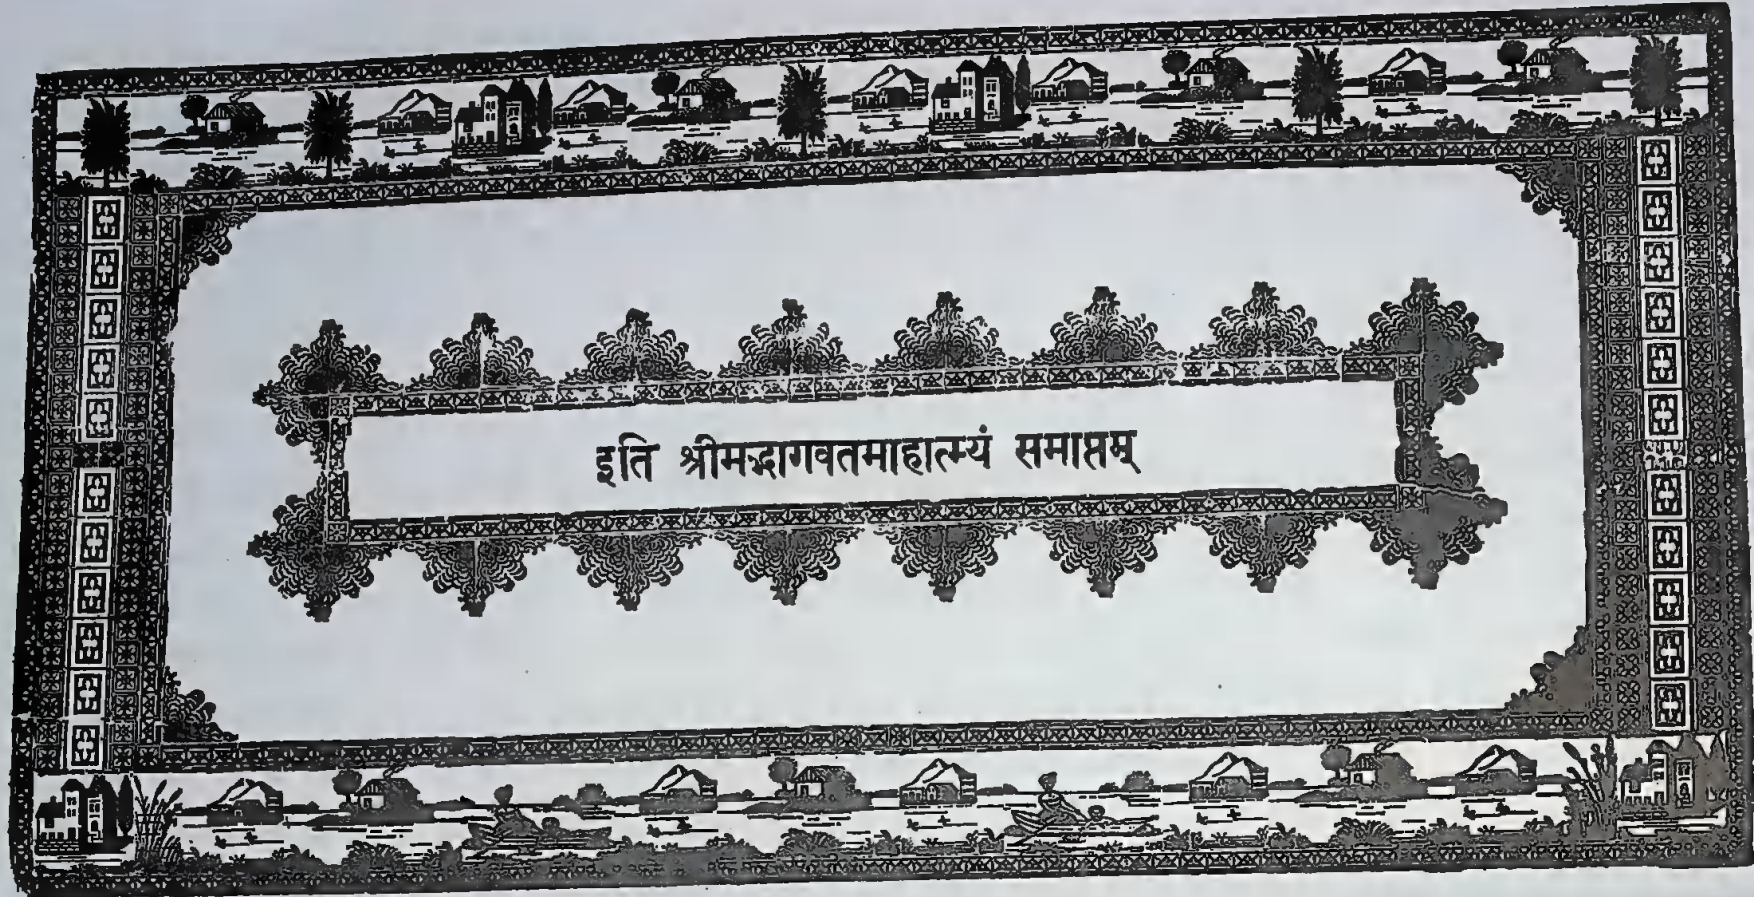 इति श्रीमद्भागवतमाहात्म्यं समाप्तम्